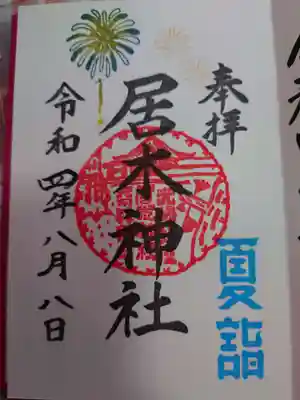 奉拝
居木神社
夏詣
令和四年八月八日